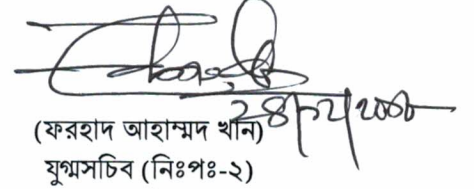 (ফরহাদ আহাম্মদ খান)
যুগ্মসচিব (নিঃপঃ-২)